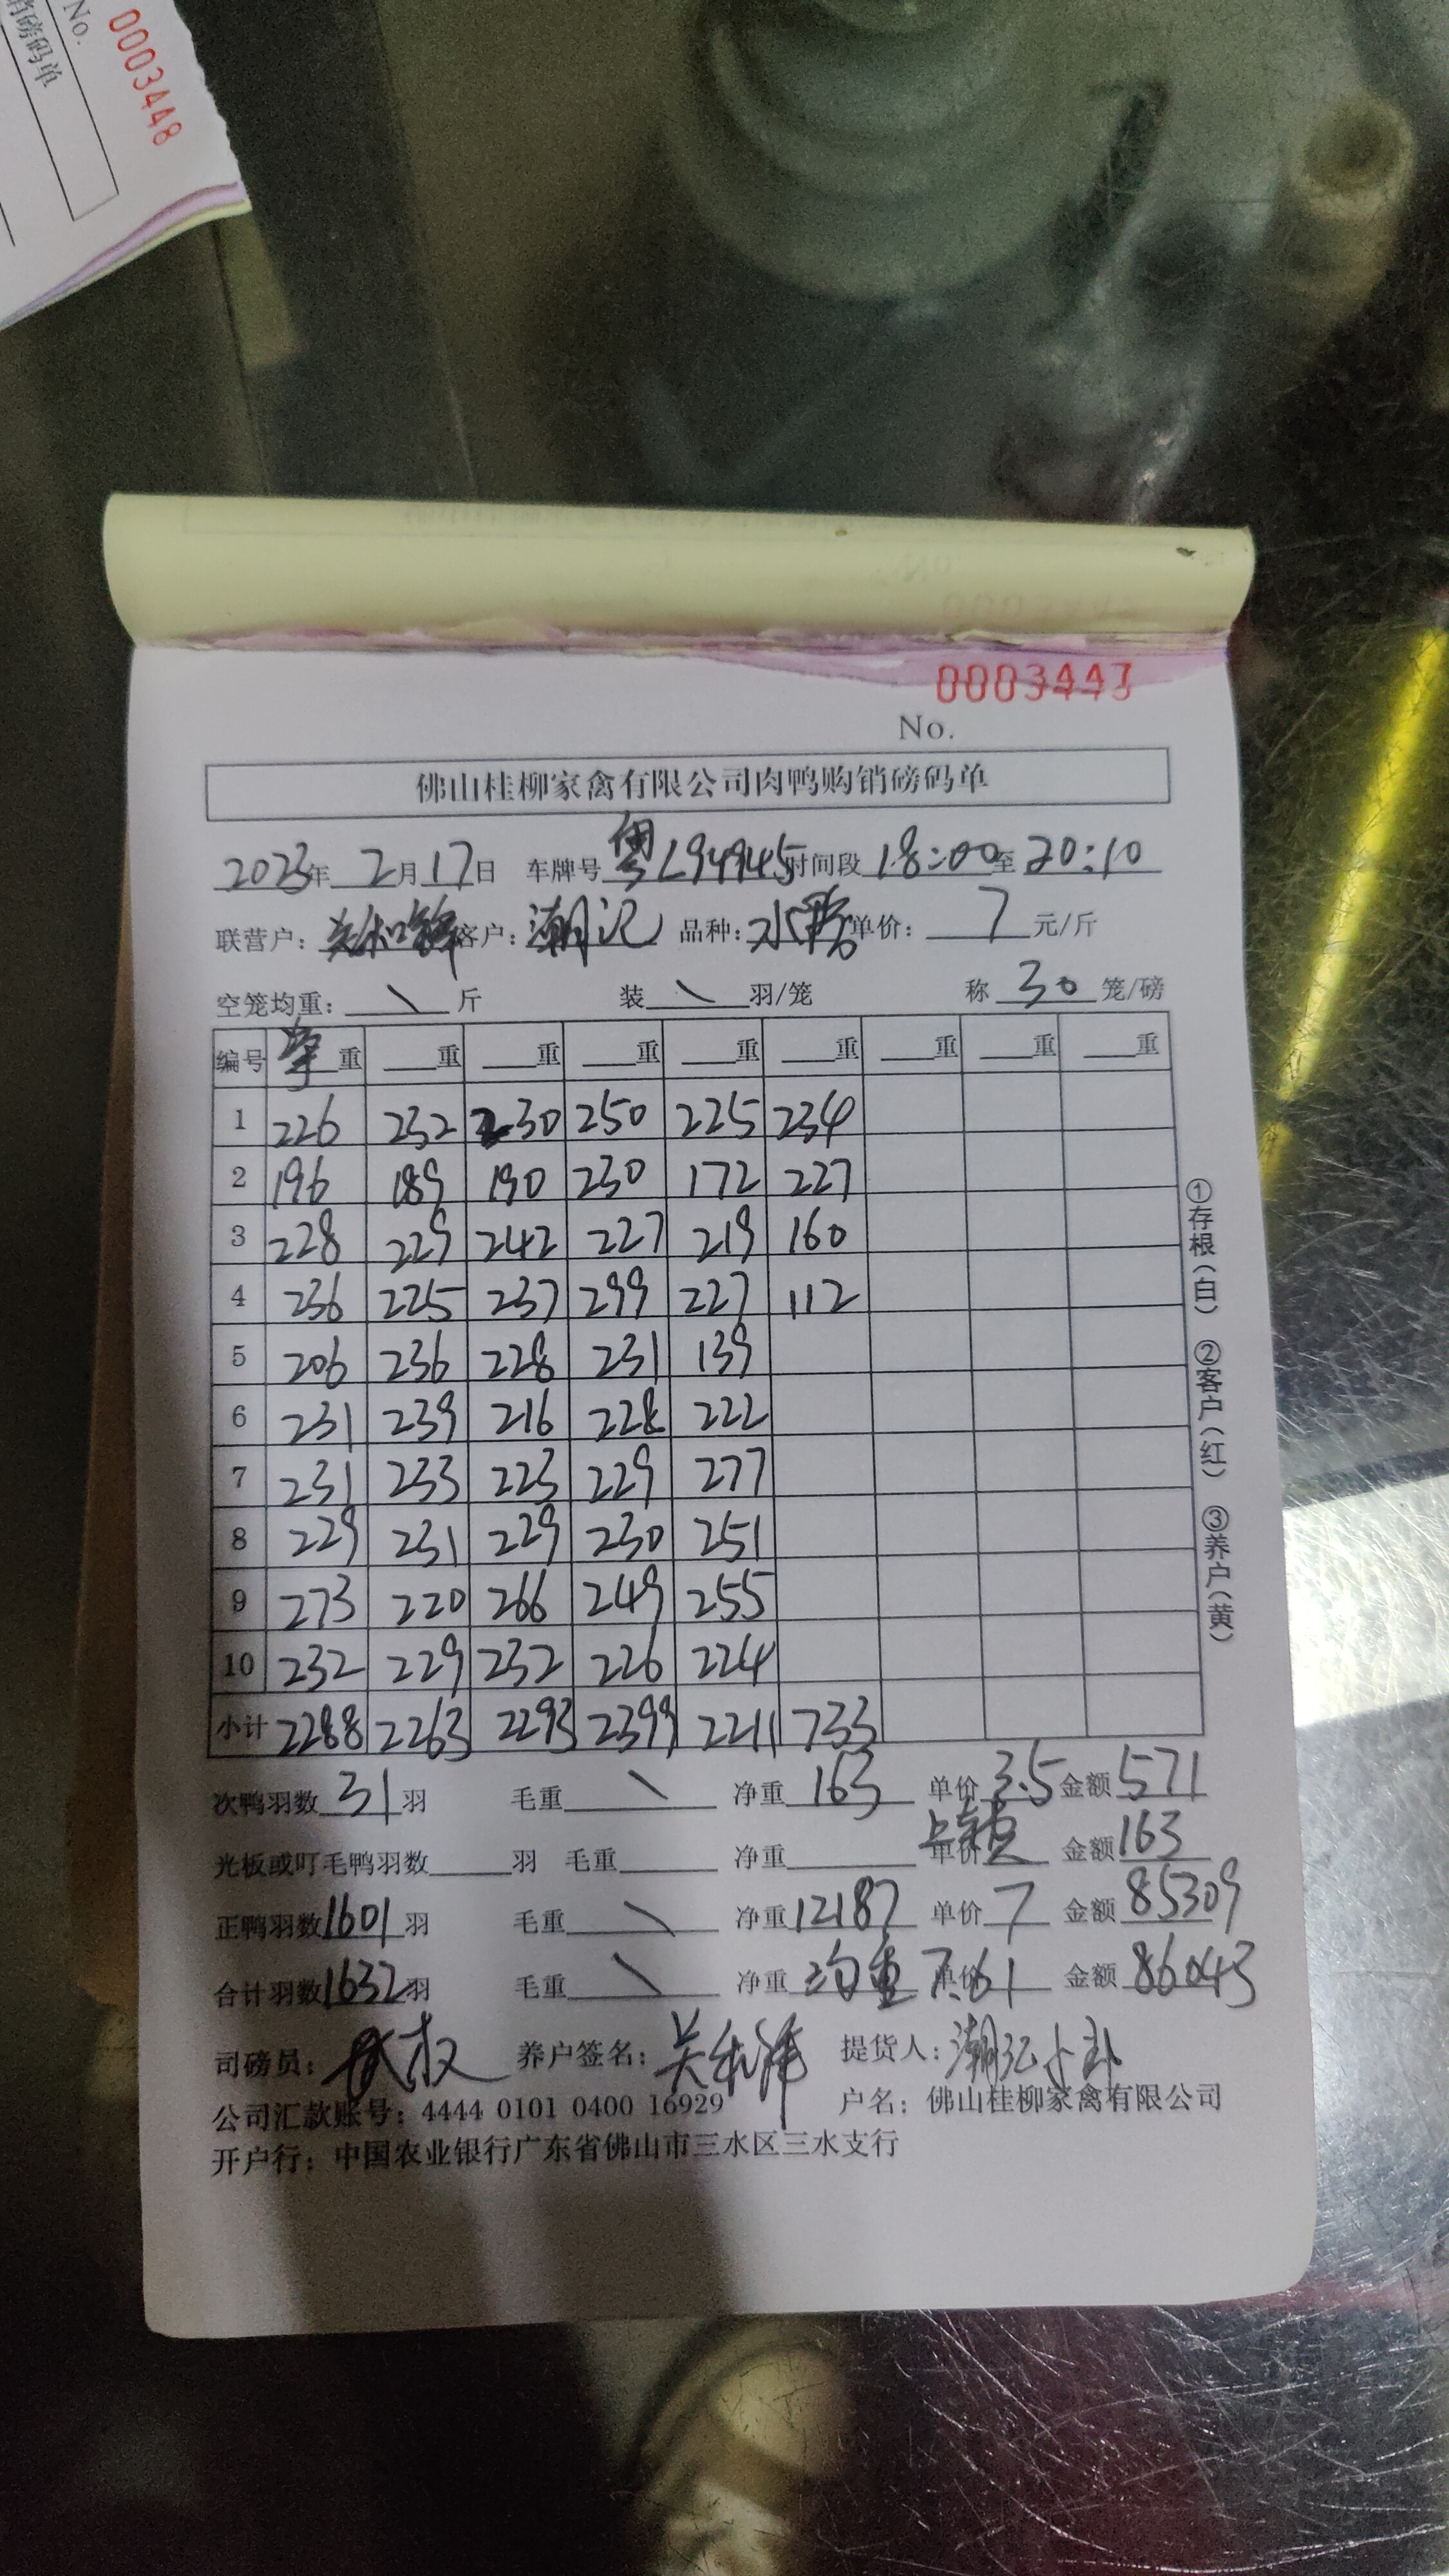 销磅码单
No.
0003448
0003447
No.
佛山桂柳家禽有限公司肉鸭购销磅码单
2023年 2月17日 车牌号 粤L94945 时间段 18:00至 20:10
联营户: 客户: 潮记 品种: 水鸭 单价: 7 元/斤
空笼均重: \ 斤 装 \ 羽/笼 称 30 笼/磅
编号 重 重 重 重 重 重 重 重 重
1 226 232 230 250 225 234
2 196 189 190 230 172 227
3 228 229 242 227 219 160
4 236 225 237 299 227 112
5 206 236 228 231 139
6 231 239 216 228 222
7 231 233 223 229 277
8 229 231 229 230 251
9 273 220 266 249 255
10 232 229 232 226 224
小计 2288 2263 2293 2399 2211 733
次鸭羽数 31 羽 毛重 \ 净重 163 单价 3.5 金额 571
光板或叮毛鸭羽数 羽 毛重 净重 单价 金额 163
正鸭羽数 1601 羽 毛重 \ 净重 12187 单价 7 金额 85309
合计羽数 1632 羽 毛重 \ 净重 均重 单价 7.61 金额 86043
司磅员: 养户签名: 提货人: 潮记
公司汇款账号: 4444 0101 0400 16929 户名: 佛山桂柳家禽有限公司
开户行: 中国农业银行广东省佛山市三水区三水支行
①存根(白) ②客户(红) ③养户(黄)